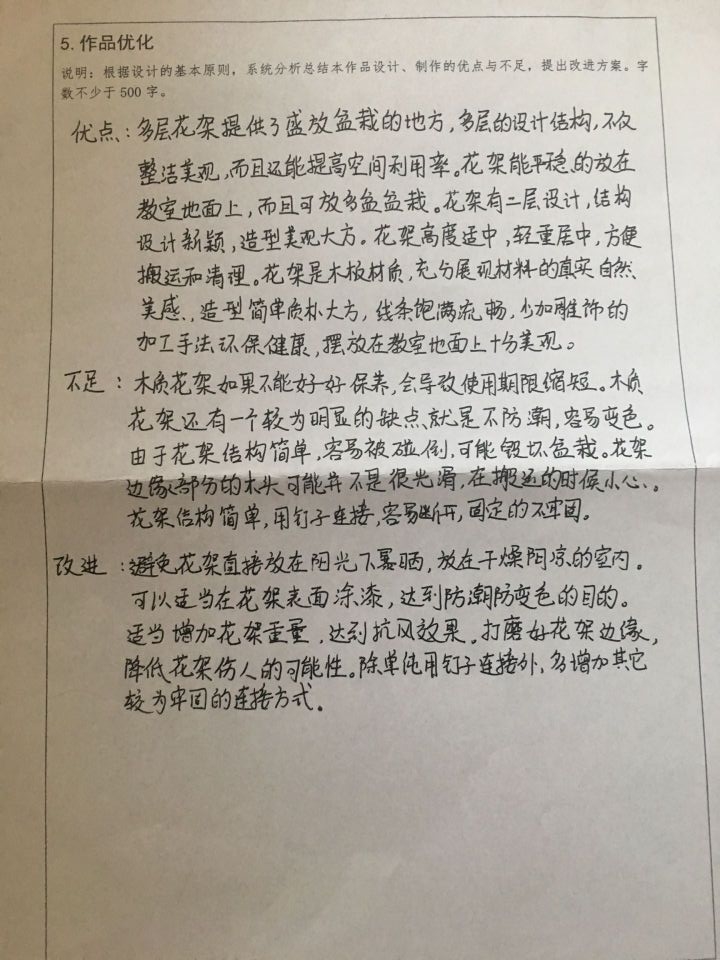 5. 作品优化
说明：根据设计的基本原则，系统分析总结本作品设计、制作的优点与不足，提出改进方案。字
数不少于 500 字。
优点：多层花架提供了盛放盆栽的地方，多层的设计结构，不仅
整洁美观，而且还能提高空间利用率。花架能平稳的放在
教室地面上，而且可放多盆盆栽。花架有二层设计，结构
设计新颖，造型美观大方。花架高度适中，轻重居中，方便
搬运和清理。花架是木板材质，充分展现材料的真实自然、
美感、，造型简单质朴大方，线条饱满流畅，少加雕饰的
加工手法环保健康，摆放在教室地面上十分美观。
不足：木质花架如果不能好好保养，会导致使用期限缩短。木质
花架还有一个较为明显的缺点就是不防潮，容易变色。
由于花架结构简单，容易被碰倒，可能毁坏盆栽。花架
边缘部分的木头可能并不是很光滑，在搬运的时候小心、。
花架结构简单，用钉子连接，容易断开，固定的不牢固。
改进：避免花架直接放在阳光下暴晒，放在干燥阴凉的室内。
可以适当在花架表面涂漆，达到防潮防变色的目的。
适当增加花架重量，达到抗风效果。打磨好花架边缘，
降低花架伤人的可能性。除单纯用钉子连接外，多增加其它
较为牢固的连接方式。